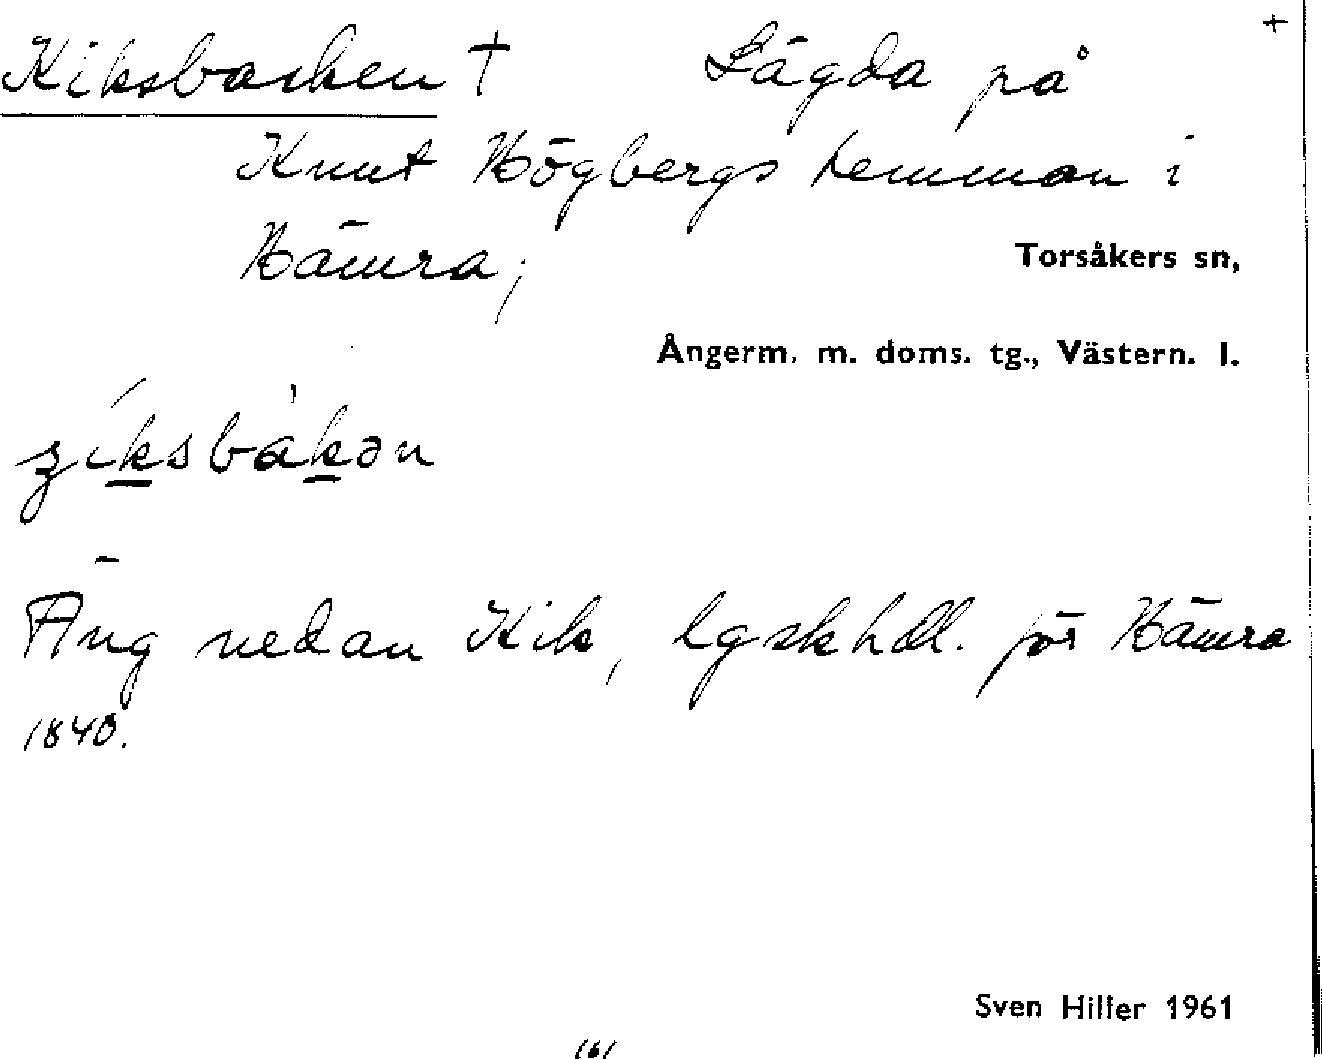 +
Kiksbacken † Lägda på
Knut Högbergs hemman i
Hämra,
Torsåkers sn,
Ångerm. m. doms. tg., Västern. l.
Äng nedan Kik, lgskhdl. för Hämra
1840.
Sven Hiller 1961
161